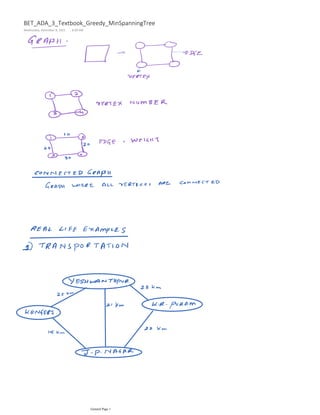 BET_ADA_3_Textbook_Greedy_MinSpanningTree
Wednesday, December 8, 2021
GRAPH.
EDGE
VERTEX
1 2
3 4
VERTEX NUMBER
10
1 2
20
3 4
30
EDGE, WEIGHT
CONNECTED GRAPH
GRAPH WHERE ALL VERTICES ARE CONNECTED
REAL LIFE EXAMPLES
1) TRANSPORTATION
YESHWANTHPUR
25 km
28 km
KENGERI
21 km
K.R. PURAM
15 km
22 km
J.P. NAGAR
General Page 1